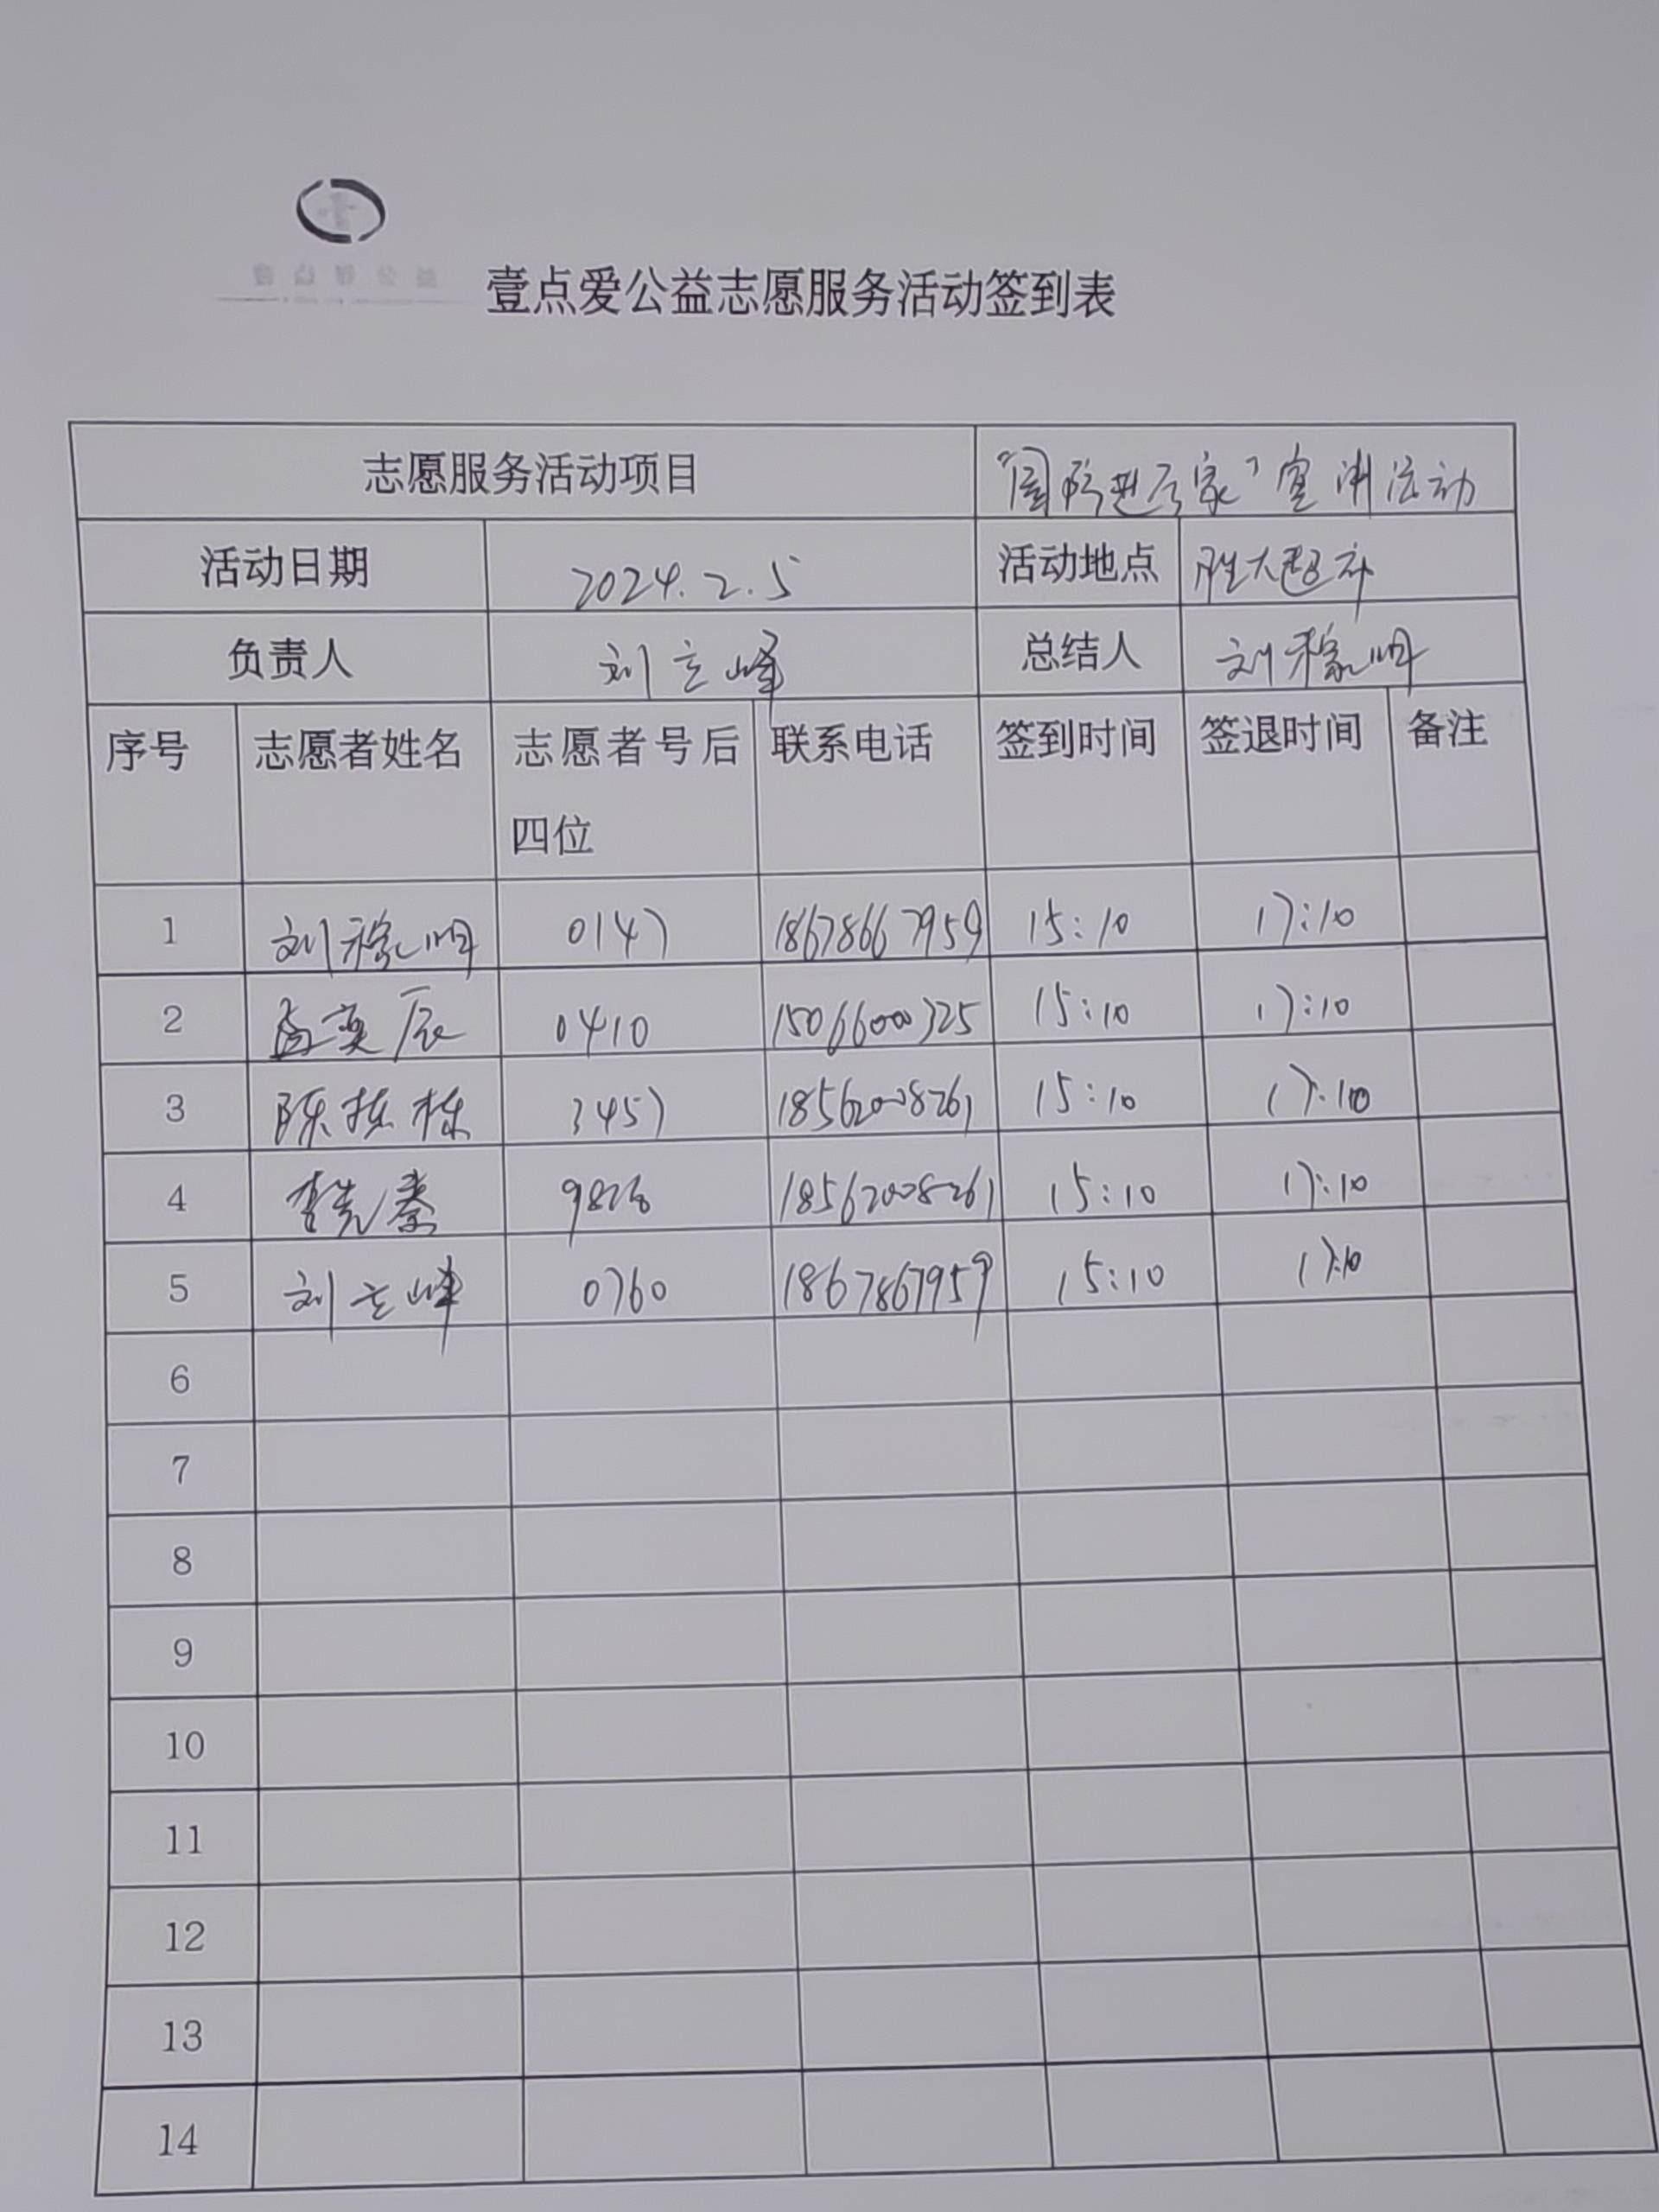 壹点爱公益志愿服务活动签到表
志愿服务活动项目 "国防进万家"宣讲活动
活动日期 2024.2.5 活动地点 胜大超市
负责人 刘立峰 总结人 刘稼明
序号 志愿者姓名 志愿者号后 联系电话 签到时间 签退时间 备注
四位
1 刘稼明 0147 18678667959 15:10 17:10
2 孟奕辰 0410 15066000325 15:10 17:10
3 陈栋栋 3457 18562008261 15:10 17:10
4 李先秦 9826 18562008261 15:10 17:10
5 刘立峰 0760 1867867959 15:10 17:10
6
7
8
9
10
11
12
13
14